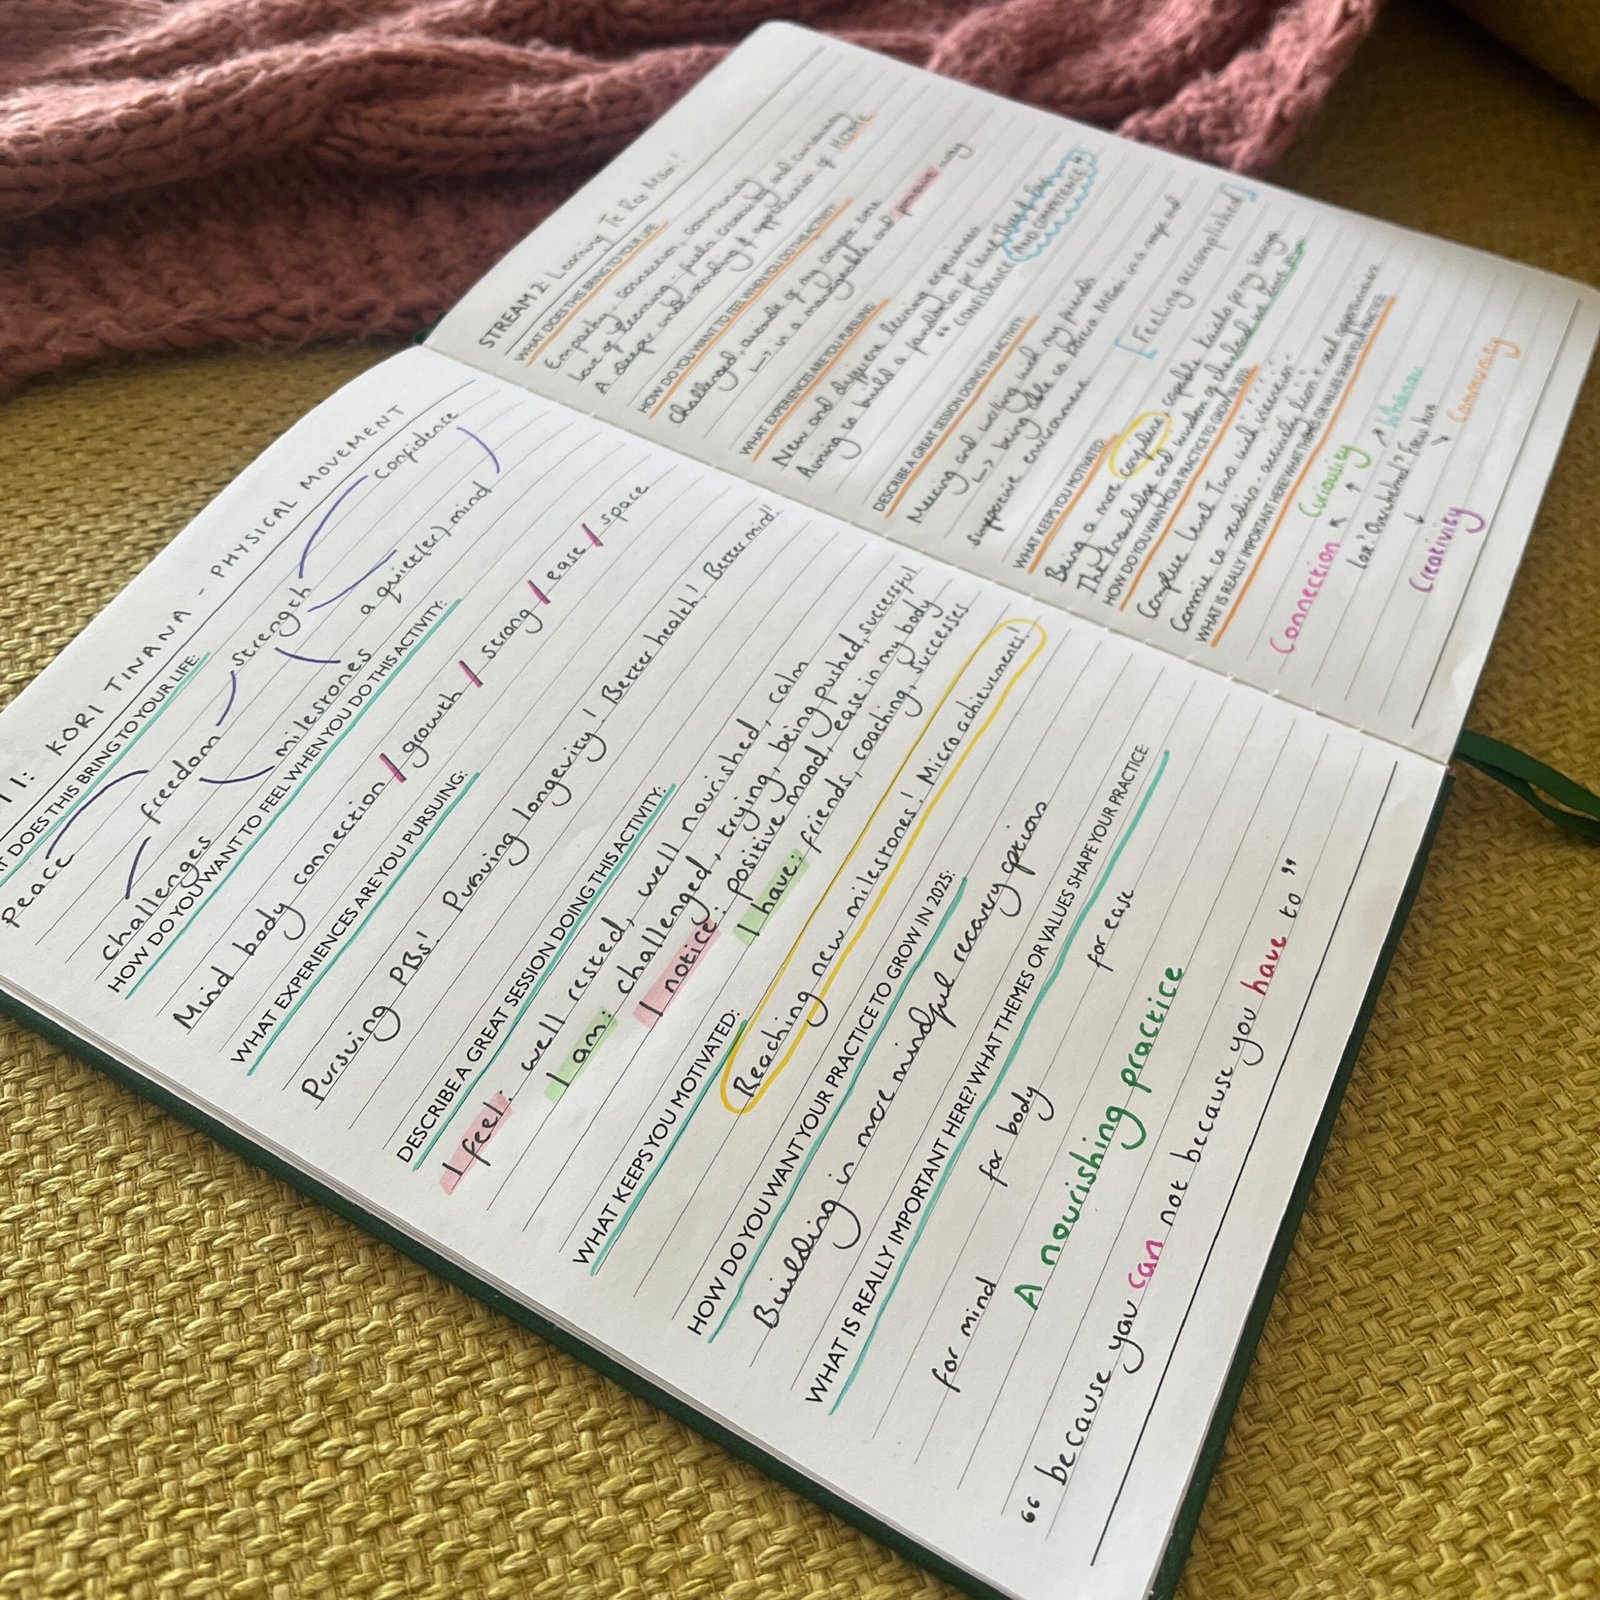 1: KORI TINANA - PHYSICAL MOVEMENT
AT DOES THIS BRING TO YOUR LIFE:
peace
freedom
strength
confidence
challenges
milestones
a quiet(er) mind
HOW DO YOU WANT TO FEEL WHEN YOU DO THIS ACTIVITY:
Mind body connection / growth / strong / ease / space
WHAT EXPERIENCES ARE YOU PURSUING:
Pursuing PBs! Pursuing longevity! Better health! Better mind!
DESCRIBE A GREAT SESSION DOING THIS ACTIVITY:
I feel: well rested, well nourished, calm
I am: challenged, trying, being pushed, successful
I notice: positive mood, ease in my body
I have: friends, coaching, successes
WHAT KEEPS YOU MOTIVATED:
Reaching new milestones! Micro achievements!
HOW DO YOU WANT YOUR PRACTICE TO GROW IN 2025:
Building in more mindful recovery options
WHAT IS REALLY IMPORTANT HERE? WHAT THEMES OR VALUES SHAPE YOUR PRACTICE:
for mind for body for ease
A nourishing practice
"because you can not because you have to"
STREAM 2: Learning Te Reo Māori!
WHAT DOES THIS BRING TO YOUR LIFE:
Empathy. Connection, community
Love of learning: fuels creativity and curiosity
A deeper understanding & appreciation of HOME
HOW DO YOU WANT TO FEEL WHEN YOU DO THIS ACTIVITY:
Challenged, outside of my comfort zone
↳ in a manageable and positive way
WHAT EXPERIENCES ARE YOU PURSUING:
New and different learning experiences
Aiming to build a foundation for Level Three & Four
"CONFIDENCE AND COMPETENCE"
DESCRIBE A GREAT SESSION DOING THIS ACTIVITY:
Meeting and working with my friends
↳ being able to kōrero Māori in a safe and
supportive environment.
[Feeling accomplished]
WHAT KEEPS YOU MOTIVATED:
Being a more capable kaiako for my
The knowledge and wisdom of the
HOW DO YOU WANT YOUR PRACTICE TO GROW IN 2025:
Complete Level Two with intention
Commit to studies - actively listen & seek opportunities
WHAT IS REALLY IMPORTANT HERE? WHAT THEMES OR VALUES SHAPE YOUR PRACTICE:
Connection
Curiosity
Whānau
Lost? Overwhelmed? Focus here
Creativity
Community